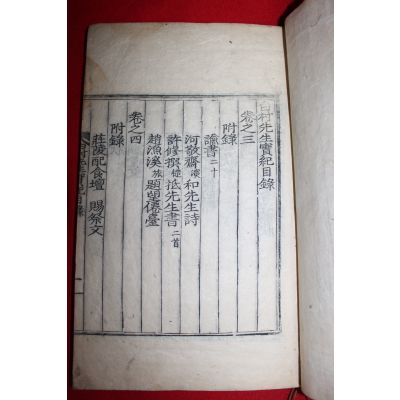 白村先生實紀目錄
卷之三
附錄
諭書二十
河敬齋演和先生詩
許修撰慥抵先生書二首
趙漁溪旅題望僊臺
卷之四
附錄
莊陵配食壇 賜祭文
目錄 一